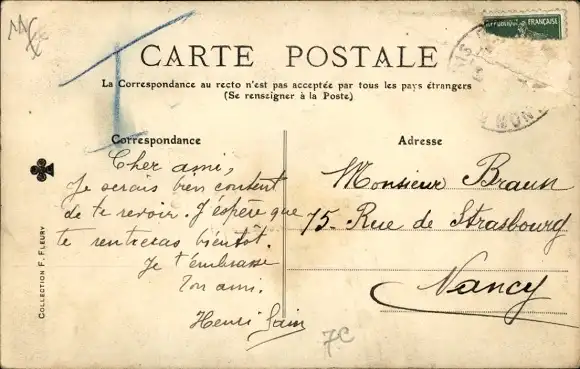 RÉPUBLIQUE FRANÇAISE
CARTE POSTALE
La Correspondance au recto n'est pas acceptée par tous les pays étrangers
(Se renseigner à la Poste)
Correspondance
Cher ami,
Je serais bien content
de te revoir. J'éspère que
te rentreras bientôt.
Je t'embrasse
Ton ami.
Henri
Adresse
Monsieur Braun
75- Rue de Strasbourg
Nancy
COLLECTION F. FLEURY
7C